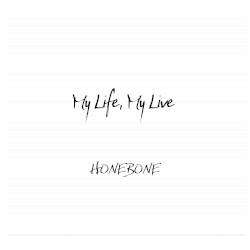 My Life, My Live
HONEBONE